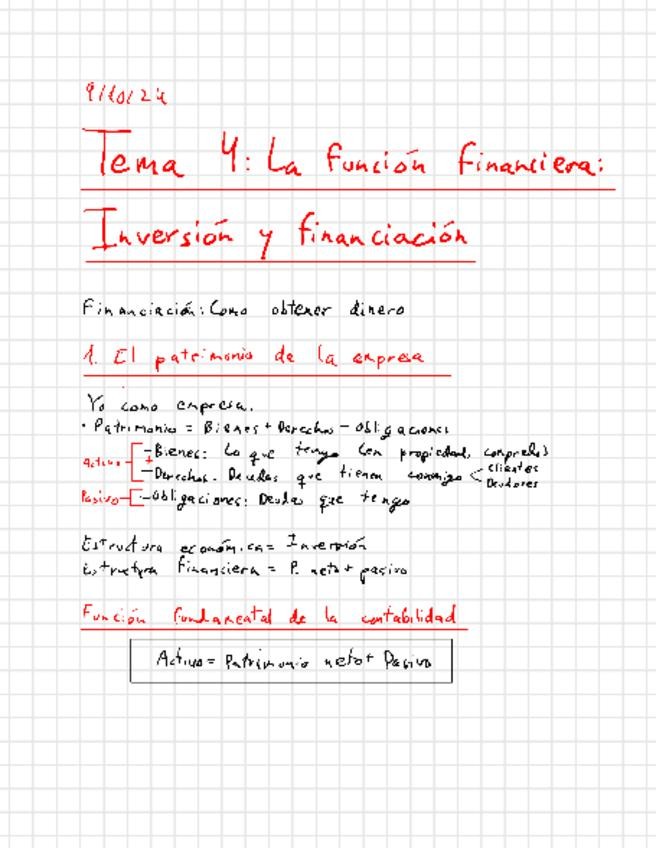 9/10/24
Tema 4: La función financiera:
Inversión y financiación
Financiación: Como obtener dinero
1. El patrimonio de la empresa
Yo como empresa.
• Patrimonio = Bienes + Derechos - obligaciones
Activo - Bienes: Lo que tengo (en propiedad, comprado)
+
- Derechos. Deudas que tienen conmigo < clientes
Deudores
Pasivo - obligaciones: Deudas que tengo
Estructura económica = Inversión
Estructura financiera = P. neto + pasivo
Función fundamental de la contabilidad
Activo = Patrimonio neto + Pasivo